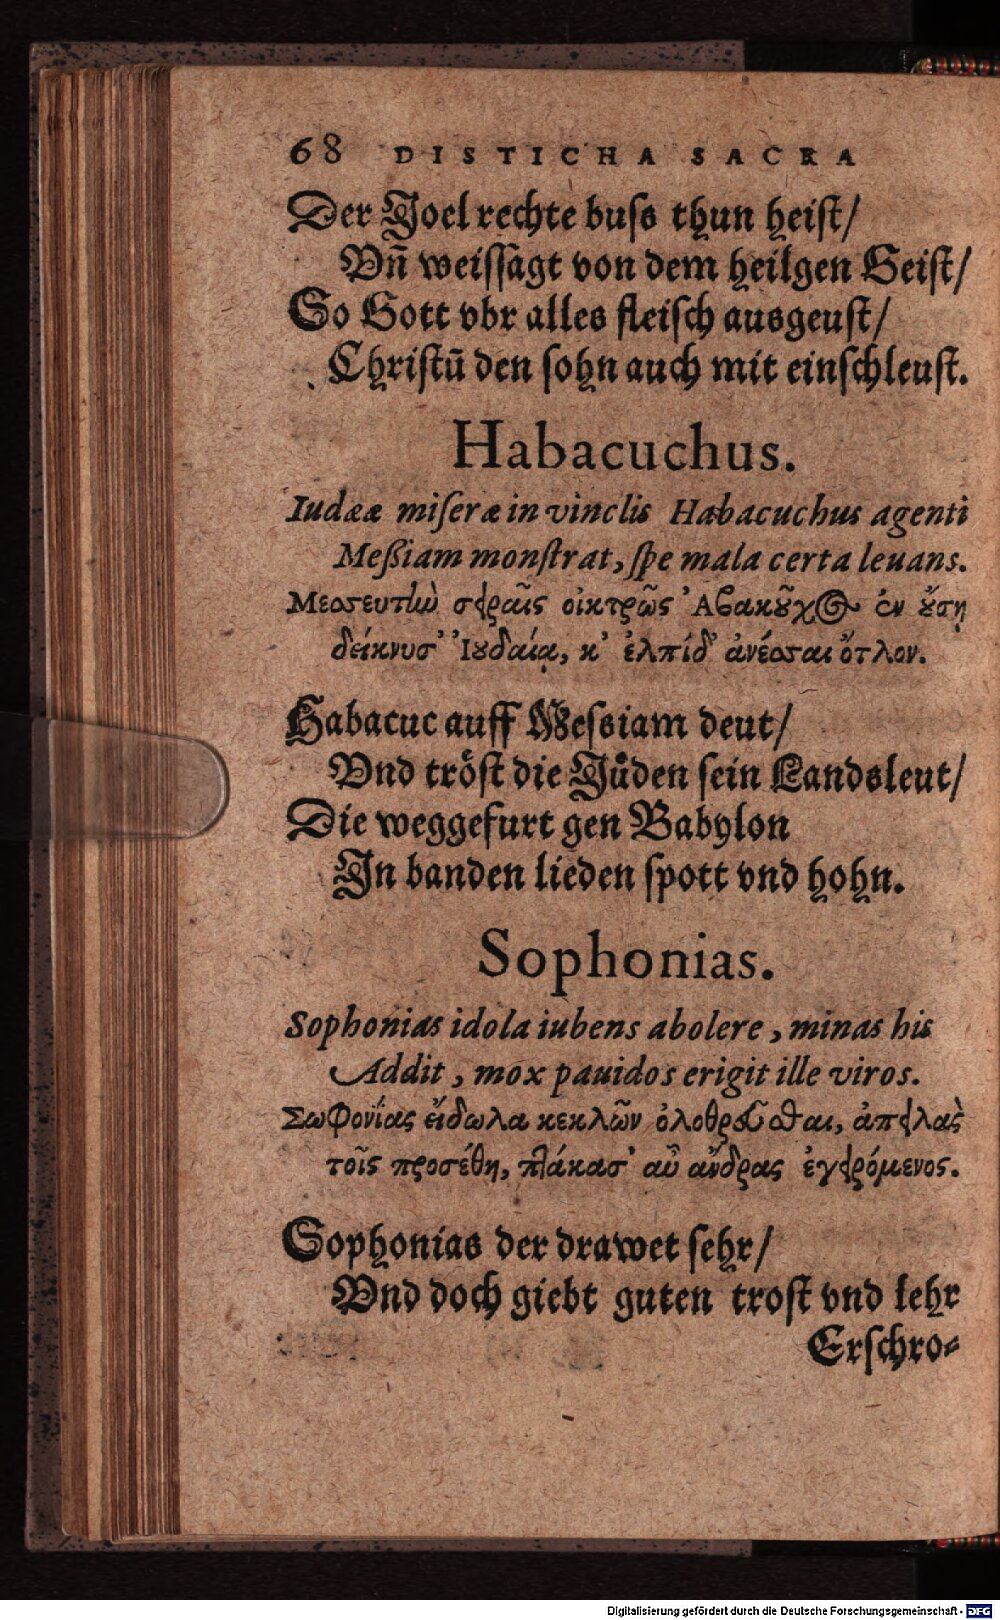 68 DISTICHA SACRA
Der Joel rechte buſs thun heiſt/
Vn̄ weiſſagt von dem heilgen Geiſt/
So Gott vbr alles fleiſch ausgeuſt/
Chriſtū den ſohn auch mit einſchleuſt.
Habacuchus.
Iudææ miſeræ in vinclis Habacuchus agenti
Meßiam monſtrat, ſpe mala certa leuans.
οἰκτρῶς Ἀβακοῦχος ἐν οὔσῃ
δείκνυσ' Ἰουδαίᾳ, κ' ἐλπίδ' ὄτλον.
Habacuc auff Meſsiam deut/
Vnd tröſt die Jůden ſein Landsleut/
Die weggefurt gen Babylon
In banden lieden ſpott vnd hohn.
Sophonias.
Sophonias idola iubens abolere, minas his
Addit, mox pauidos erigit ille viros.
Σωφονίας εἴδωλα ὀλοθρεῦσθαι, ἀπειλὰς
τοῖς προσέθη, πλάκασ' αὖ ἄνδρας ἐγειρόμενος.
Sophonias der drawet ſehr/
Vnd doch giebt guten troſt vnd lehr
Erſchro-
Digitalisierung gefördert durch die Deutsche Forschungsgemeinschaft - DFG